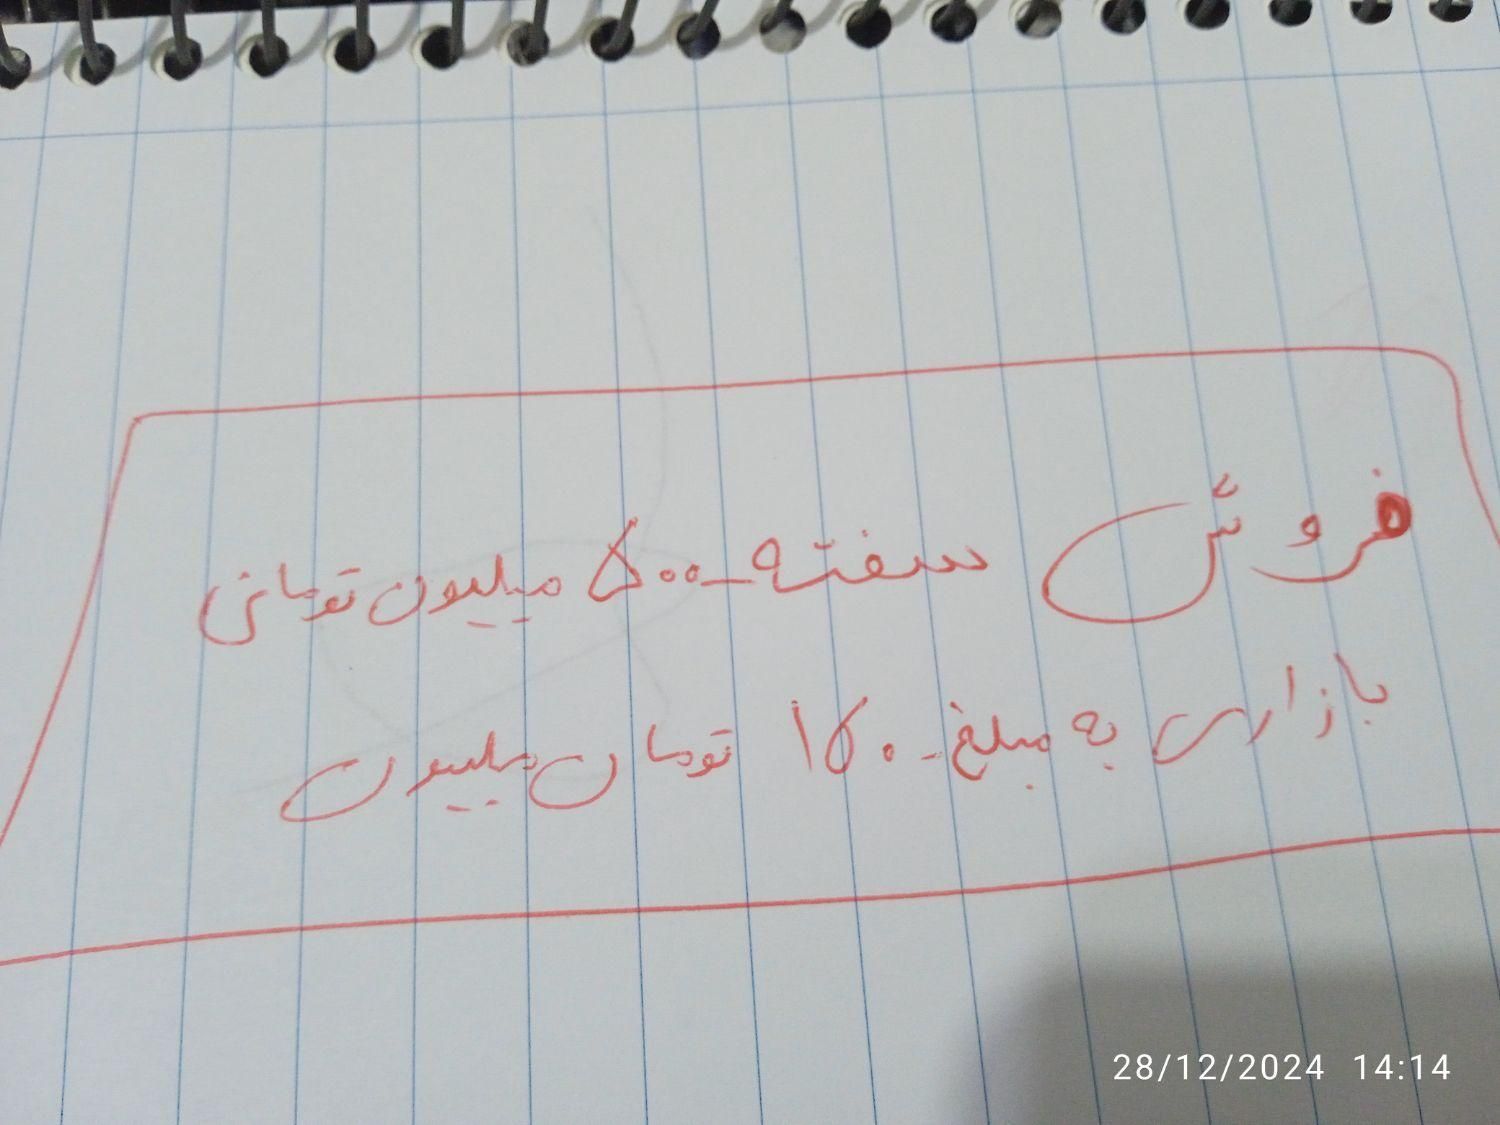 فروش سفته ۵۰۰ میلیون تومانی
بازاری به مبلغ ۱۵۰ تومان میلیون
28/12/2024 14:14